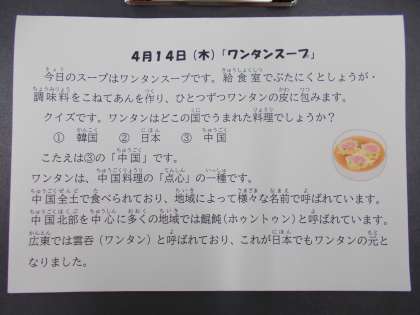 4月14日(木)「ワンタンスープ」
今日のスープはワンタンスープです。給食室でぶたにくとしょうが・
調味料をこねてあんを作り、ひとつずつワンタンの皮に包みます。
クイズです。ワンタンはどこの国でうまれた料理でしょうか?
① 韓国 ② 日本 ③ 中国
こたえは③の「中国」です。
ワンタンは、中国料理の「点心」の一種です。
中国全土で食べられており、地域によって様々な名前で呼ばれています。
中国北部を中心に多くの地域では餛飩(ホゥントゥン)と呼ばれています。
広東では雲呑(ワンタン)と呼ばれており、これが日本でもワンタンの元と
なりました。